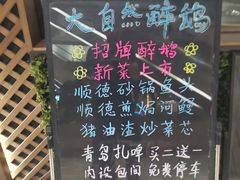 大自然醉鹅
招牌醉鹅
新菜上市
顺德砂锅鱼头
顺德煎焗河鳗
猪油渣炒菜芯
青岛扎啤 买二送一
内设包间 免费停车